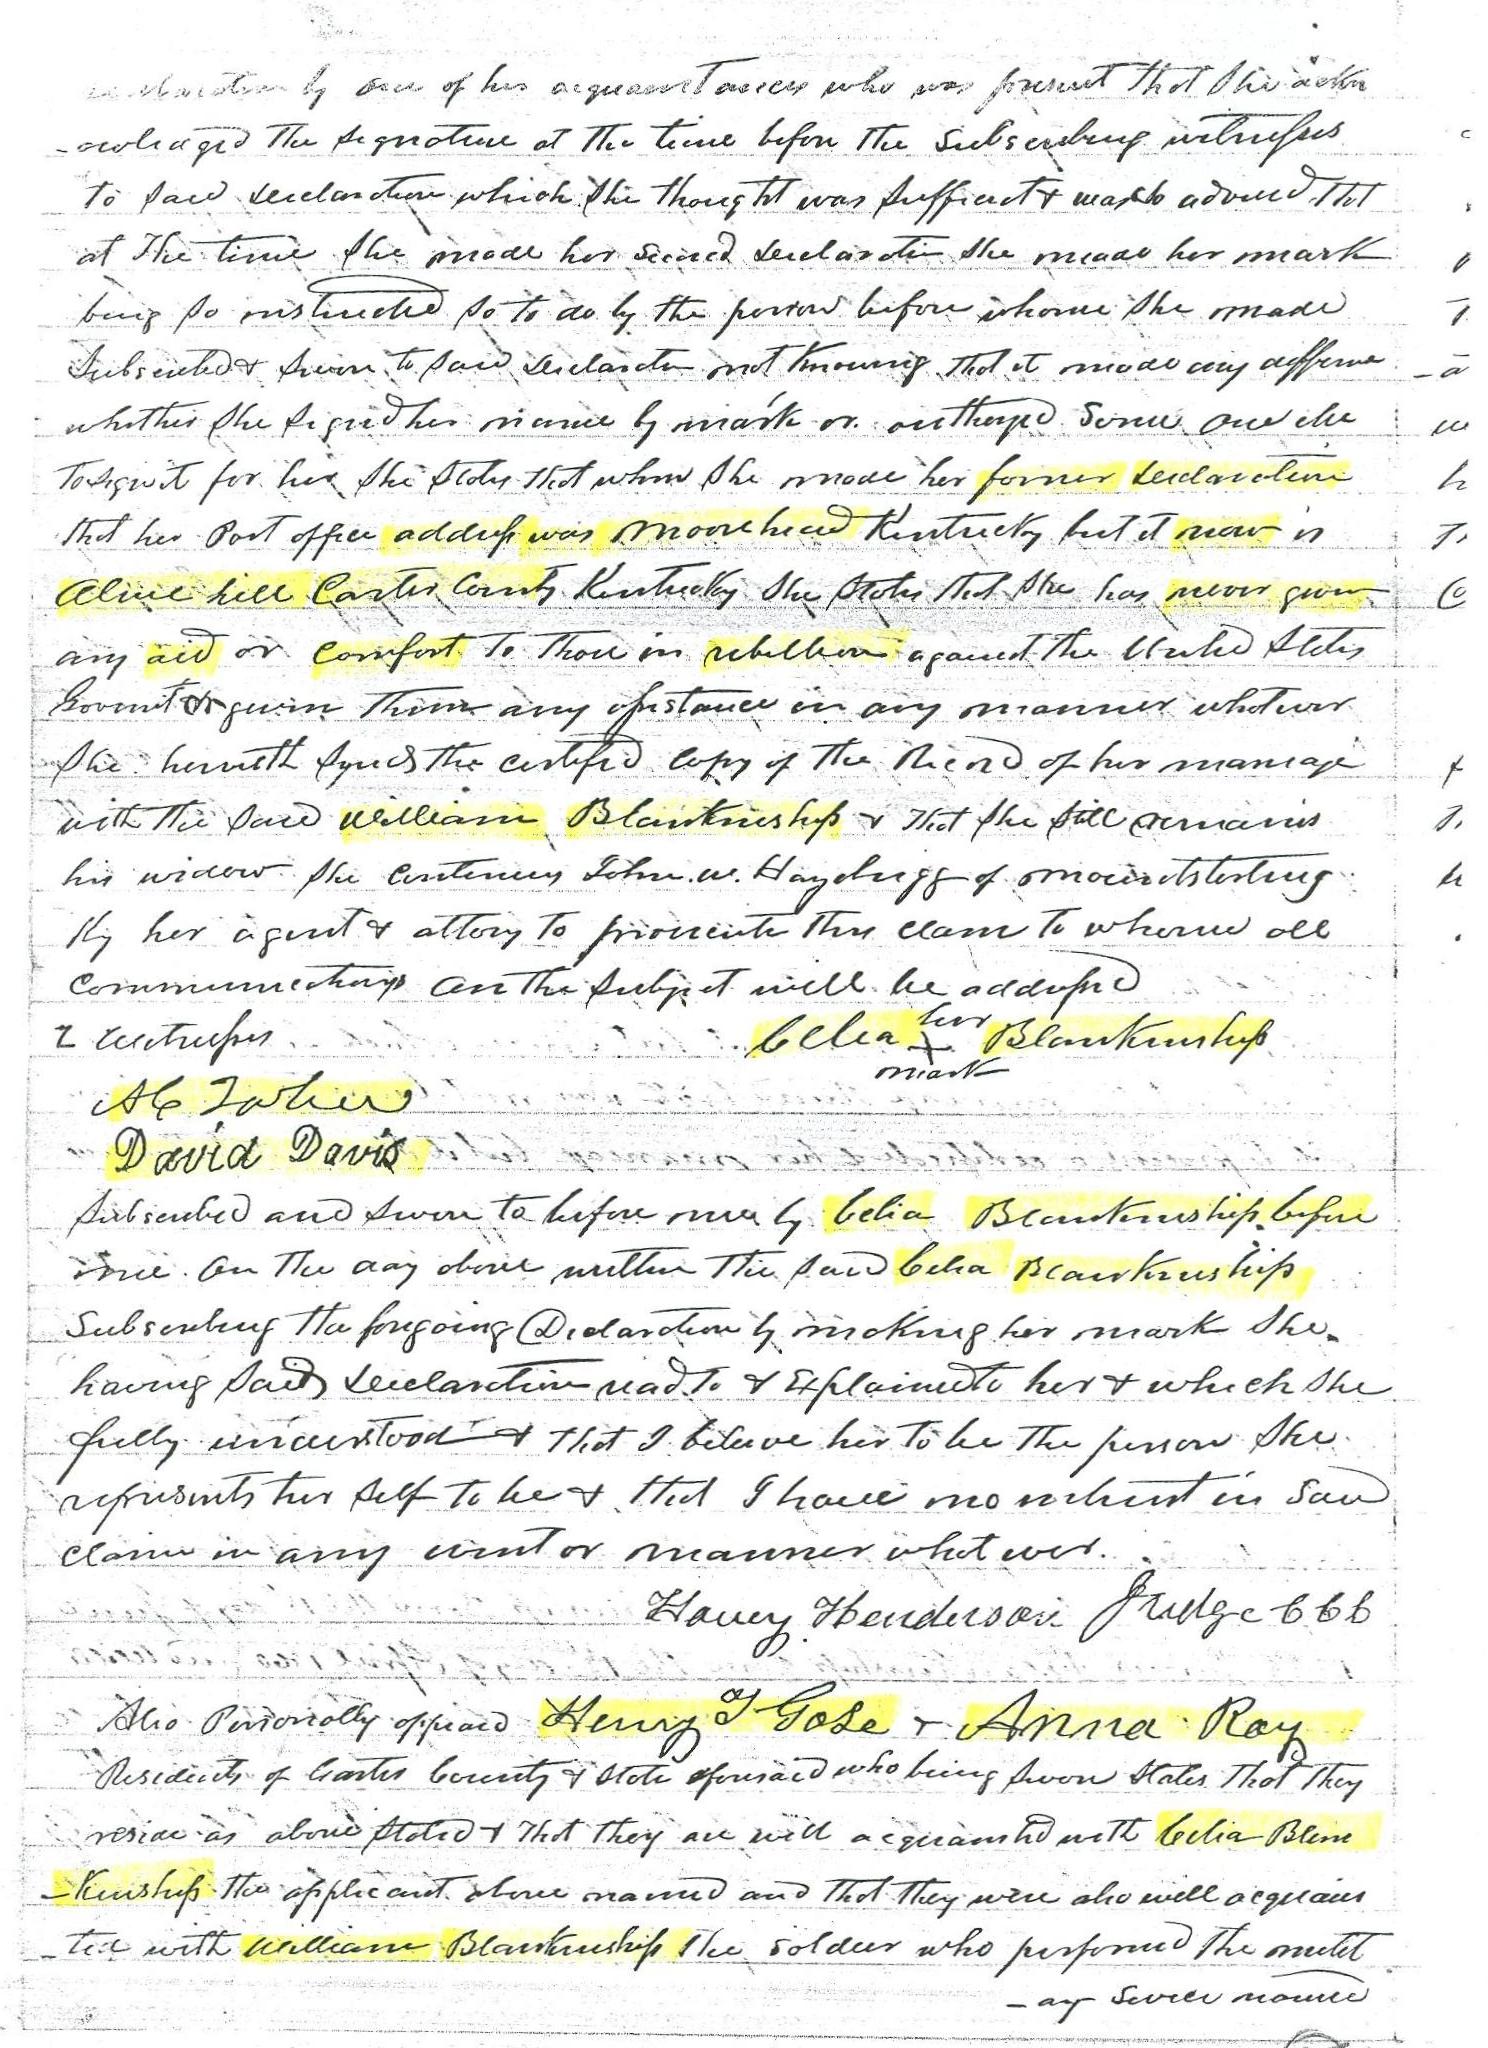 by one of her acquaintances who was present that she ackn
-owledged the signature at the time before the subscribing witnesses
to said declaration which she thought was sufficient & was so advised that
at the time she made her second declaration she made her mark
being so instructed so to do by the person before whome she made
subscribed & sworn to said declaration not knowing that it made any difference
whether she signed her name by mark or authorized some one else
to sign it for her she states that when she made her former declaration
that her Post office address was Moorehead Kentucky but it now is
Olive hill Carter County Kentucky she states that she has never given
any aid or comfort to those in rebellion against the United States
Goverment or given them any assistance in any manner whatever
she herewith the certified copy of the Record of her marriage
with the said William Blankinship & that she still remains
his widow she continues John. W. Hazelrigg of mountsterling
Ky her agent & attorny to prosecute this claim to whome all
communications on the subject will be addressed
2 witnesses Celia her Blankinship
x
mark
David Davis
Subscribed and sworn to before me by Celia Blankinship before
me. on the day above written the said Celia Blankinship
Subscribing the foregoing Declaration by making her mark she
having said declaration read to & Explained to her & which she
fully understood & that I believe her to be the person she
represents her self to be & that I have no interest in said
claim in any event or manner whatever.
Harvey Henderson Judge C C C
Also Personally appeared Henry T Gose & Anna Ray
Residents of Carter County & State aforesaid who being sworn states that they
reside as above stated & that they are well acquainted with Celia Blan
-kinship the applicant above named and that they were also well acquain
-ted with William Blankinship the soldier who performed the milit
-ary service named